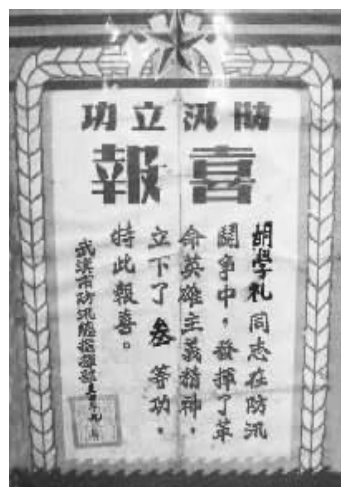 防汛立功
喜報
胡學礼同志在防汛
鬪爭中，發揮了革
命英雄主義精神，
立下了叁等功，
特此報喜。
武漢市防汛總指揮部